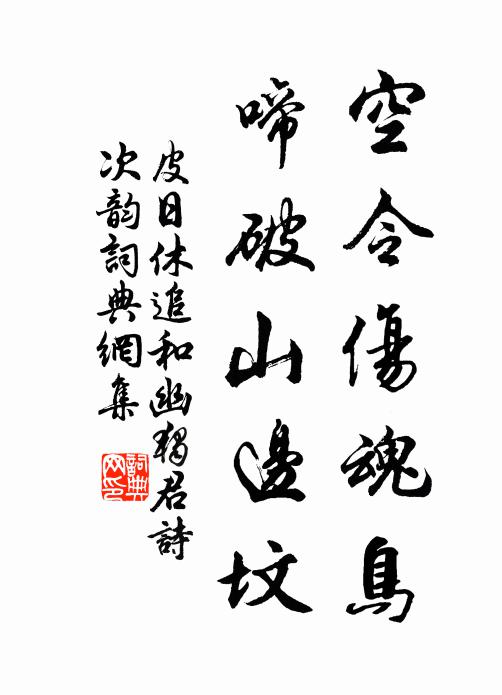 空令傷魂鳥
啼破山邊墳
皮日休追和幽獨君詩
次韵詞典網集
詞典網印